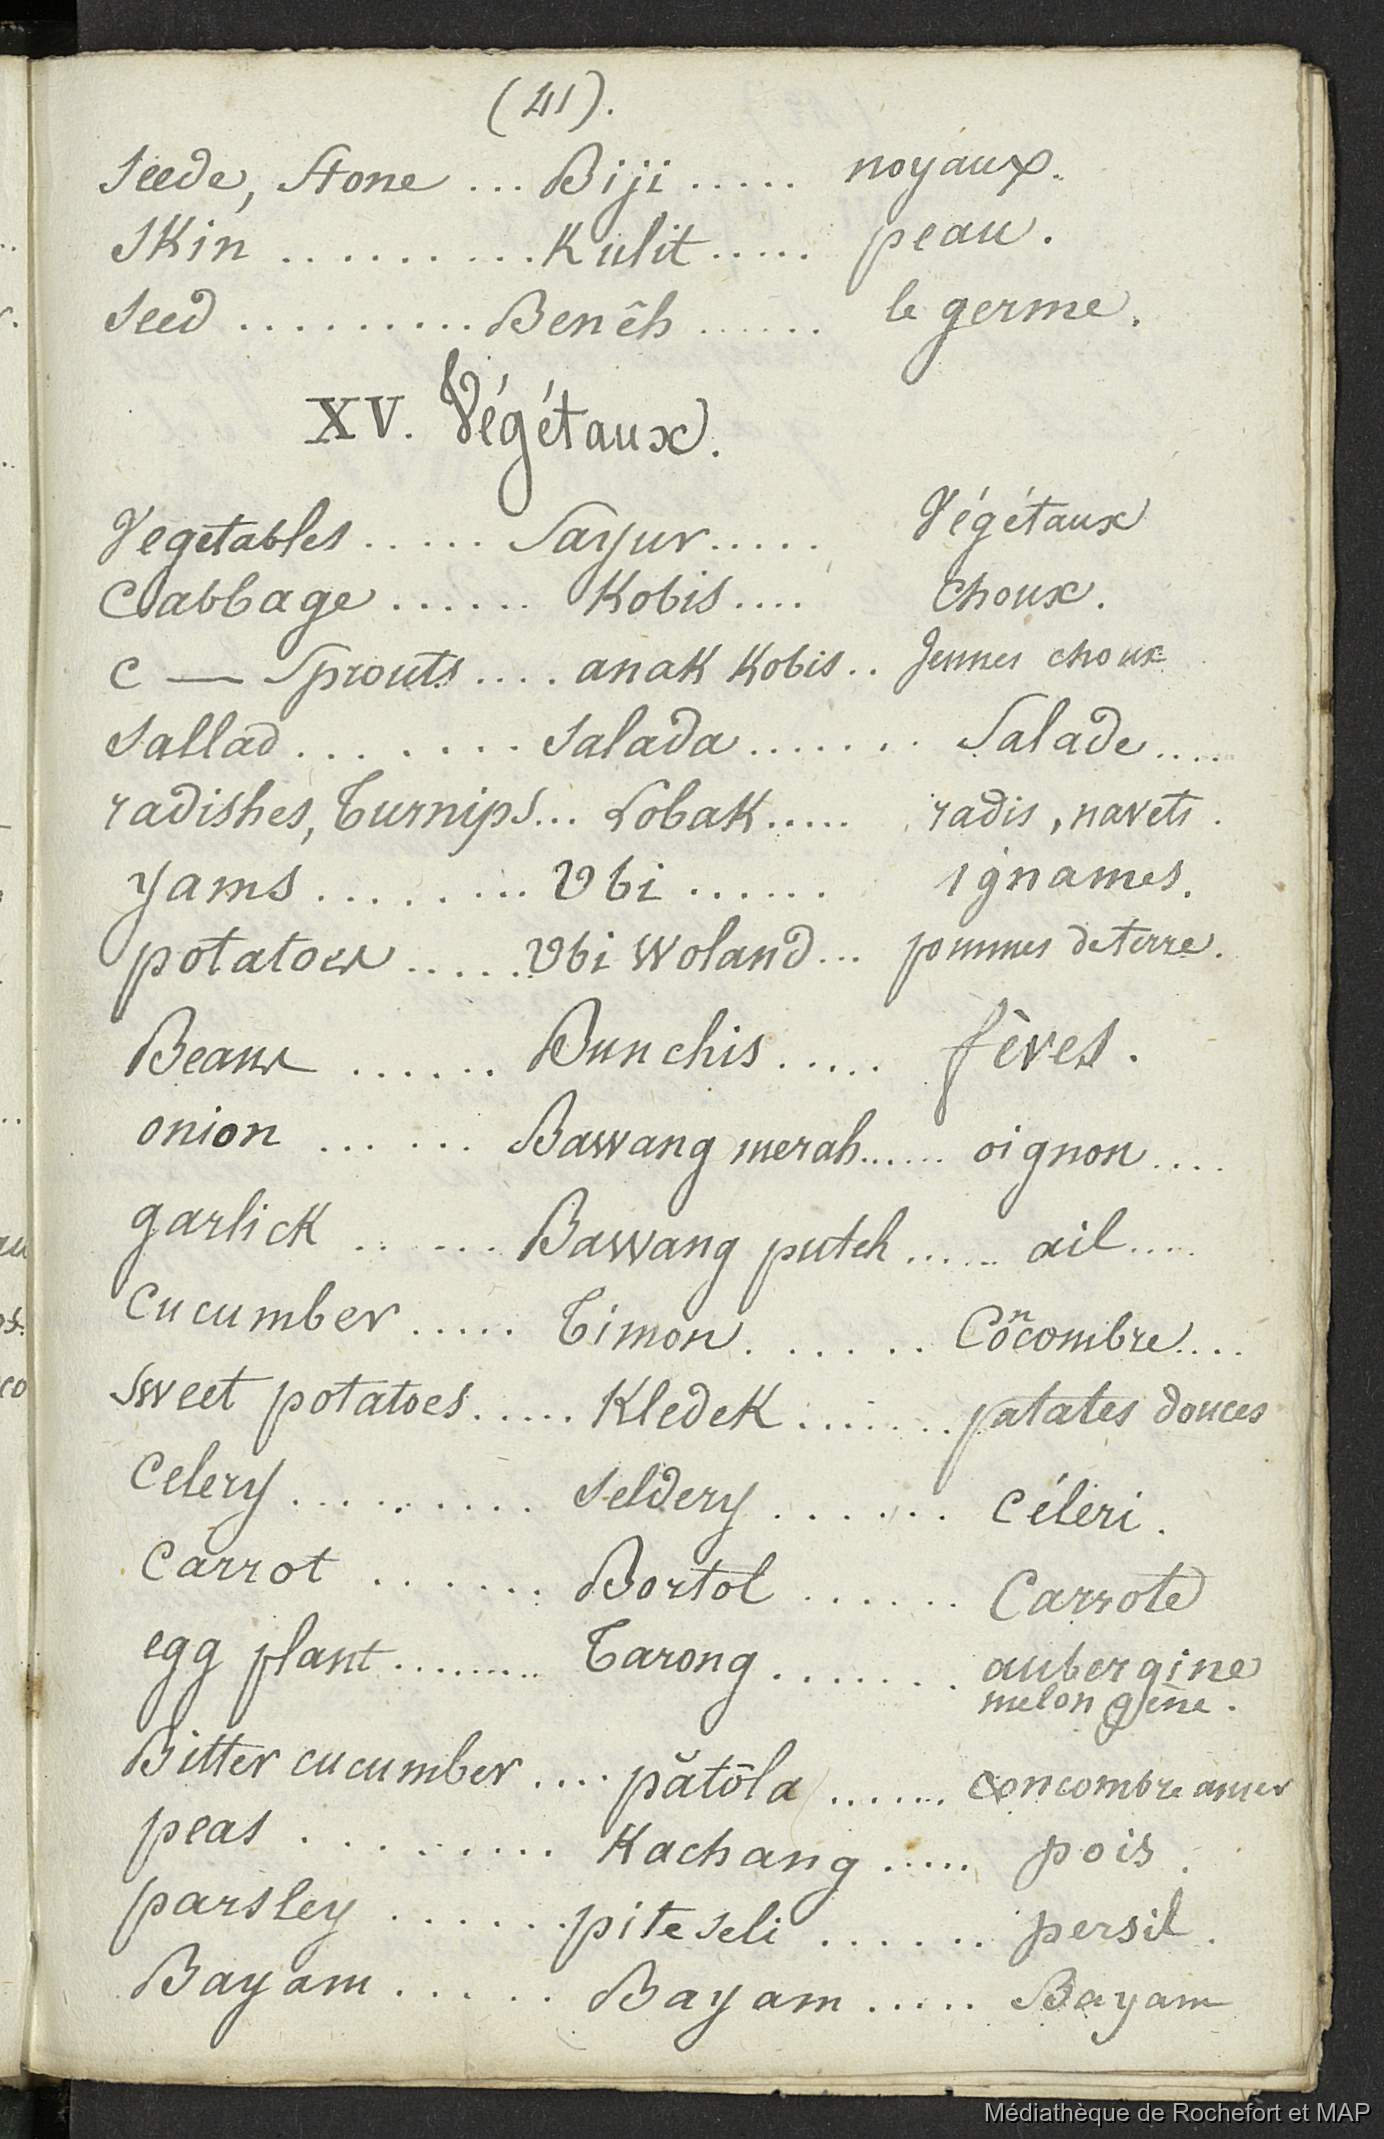 (41).
Seede, Stone ... Biji ..... noyaux.
Skin .......... Kulit ..... peau.
Seed .......... Benêh ...... le germe.
XV. Végétaux.
Vegetables ..... Sayur ..... Végétaux
Cabbage ...... Kobis .... Choux.
C — Sprouts .... anak Kobis .. Jeunes choux
Sallad ........ Salada ....... Salade ....
radishes, Turnips ... Lobak ..... radis, navets.
yams ........ Ubi ...... ignames.
potatoes ..... Ubi Woland ... pommes de terre.
Beans ...... Bunchis ..... fêves.
onion ...... Bawang merah ...... oignon ....
garlick ...... Bawang puteh ...... ail .....
Cucumber ..... Timon ...... Concombre ....
Sweet potatoes ..... Kledek ....... patates douces
Celery ......... Seldery ...... Céleri.
Carrot ...... Bortol ...... Carrote
egg plant ......... Tarong ...... aubergine
melongène.
Bitter cucumber .... pătōla ...... concombre amer
peas ......... Kachang ..... pois.
parsley ...... piteseli ...... persil.
Bayam ..... Bayam ..... Bayam
Médiathèque de Rochefort et MAP